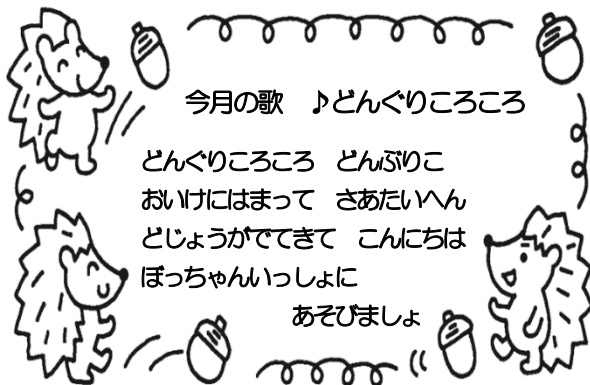 今月の歌　♪どんぐりころころ
どんぐりころころ　どんぶりこ
おいけにはまって　さあたいへん
どじょうがでてきて　こんにちは
ぼっちゃんいっしょに
あそびましょ